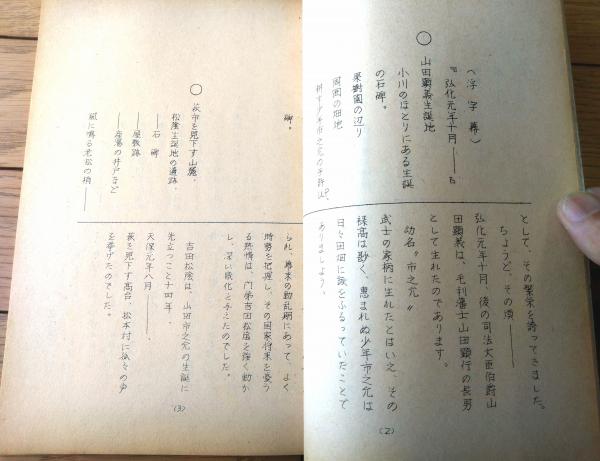 （浮字幕）
〝弘化元年十月――〟
○
山田顕義生誕地
小川のほとりにある生誕
の石碑。
果樹園の辺り
周囲の畑地
として、その繁栄を誇ってきました。
ちょうど、その頃――
弘化元年十月、後の司法大臣伯爵山
田顕義は、毛利藩士山田顕行の長男
として生れたのであります。
幼名〝市之允〟
武士の家柄に生れたとはいえ、その
禄高は尠く、恵まれぬ少年市之允は
日々田畑に鍬をふるっていたことで
ありましょう。
(2)
碑。
○
萩市を見下す山麓。
松陰生誕地の遺跡。
――石碑
――屋敷跡
――産湯の井戸など
風に鳴る老松の梢――
られ、幕末の動乱期にあって、よく
時勢を把握し、その国家将来を憂う
る熱情は、門弟吉田松陰を強く動か
し、深い感化を与えたのでした。
吉田松陰は、山田市之允の生誕に
先立つこと十四年、
天保元年八月――
萩を見下す高台、松本村に呱々の声
を挙げたのでした。
(3)